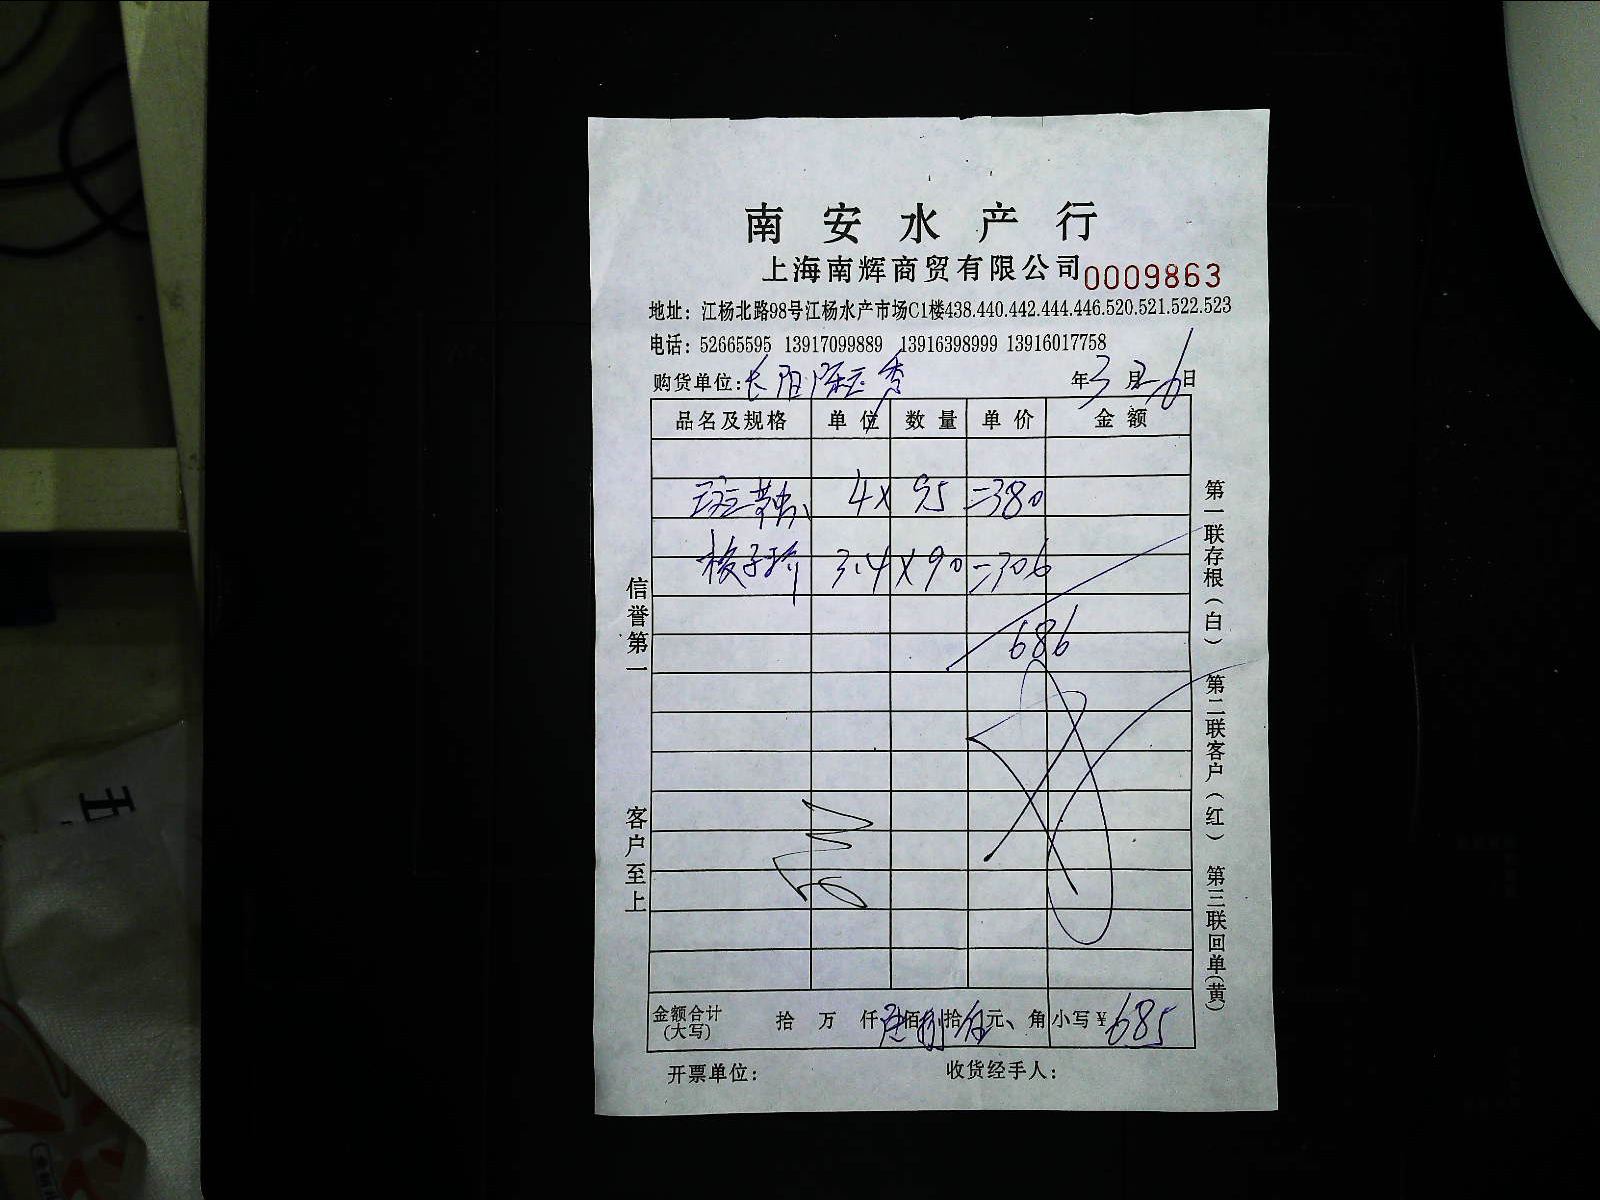 南安水产行
上海南辉商贸有限公司 0009863
地址：江杨北路98号江杨水产市场C1楼438.440.442.444.446.520.521.522.523
电话：52665595 13917099889 13916398999 13916017758
购货单位：长阳 秀 年3月26日
品名及规格 单位 数量 单价 金额
4× 95 =380
梭子 3.4×90=306
686
金额合计(大写) 拾 万 仟 陆佰捌拾伍元、角 小写￥685
开票单位： 收货经手人：
信誉第一
客户至上
第一联存根（白） 第二联客户（红） 第三联回单（黄）
五